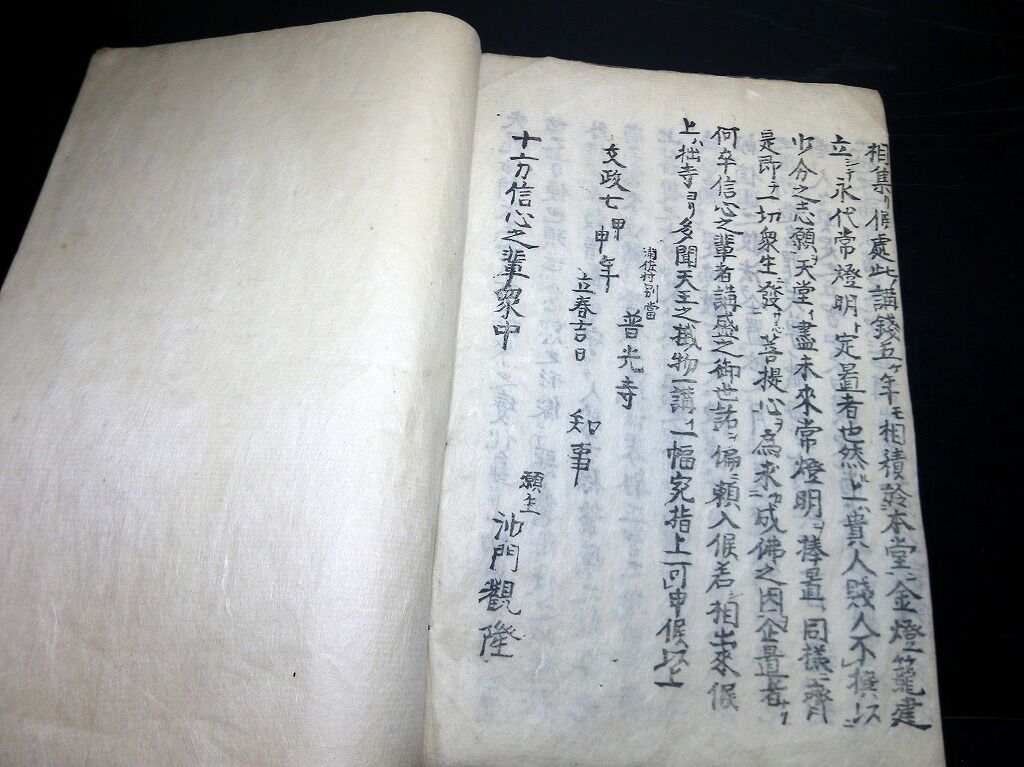 相集リ候處此講錢五ヶ年モ相積於本堂ニ金燈籠建
立シテ永代常燈明ト定置者也然ル上ハ貴人賤人不撰以ス
少分之志願ヲ天堂ニ盡未來常燈明ヲ捧置同様ニ齊
是即チ一切衆生ニ發サセ菩提心ヲ為永ク成佛之因ト企置者ナリ
何卒信心之輩者講盛之御世話ヲ偏ニ頼入候若相出來候
上ハ拙寺ヨリ多聞天王之掛物一講ニ一幅宛指上可申候以上
浦佐村別當
普光寺
文政七甲申年
立春吉日
知事
願主
沙門觀隆
十方信心之輩衆中